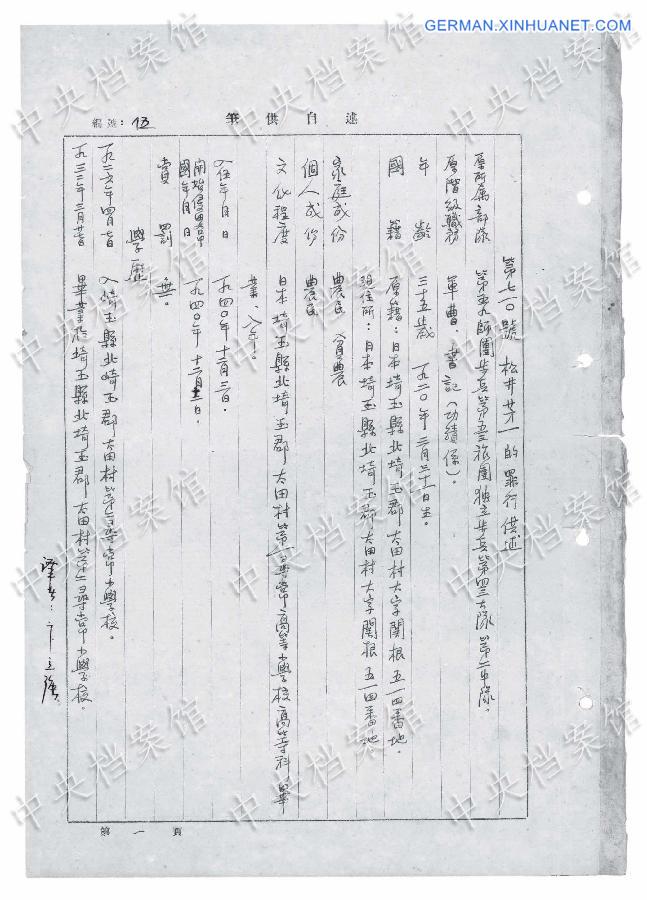 GERMAN.XINHUANET.COM
述自供筆
編號：13
第七一〇號 松井芽一的罪行供述
原所屬部隊 第五九師團步兵第五三旅團獨立步兵第四三大隊第二中隊。
原階級職務 軍曹、書記（功績係）。
年齡 三十五歲 一九二〇年三月三十一日生。
國籍 原籍：日本埼玉縣北埼玉郡太田村大字關根五一四番地。
現住所：日本埼玉縣北埼玉郡太田村大字關根五一四番地
家庭成份 農民 貧農
個人成份 農民
文化程度 日本埼玉縣北埼玉郡太田村第二尋常高等小學校高等科畢
業、八年。
入伍年月日 一九四〇年十二月三日。
開始侵略中國年月日 一九四〇年十二月十二日。
賞罰 無。
學歷
一九二六年四月一日 入埼玉縣北埼玉郡太田村第二尋常小學校。
一九三二年三月廿日 畢業於埼玉縣北埼玉郡太田村第二尋常小學校。
譯者：卞立強
第一頁
中央档案馆